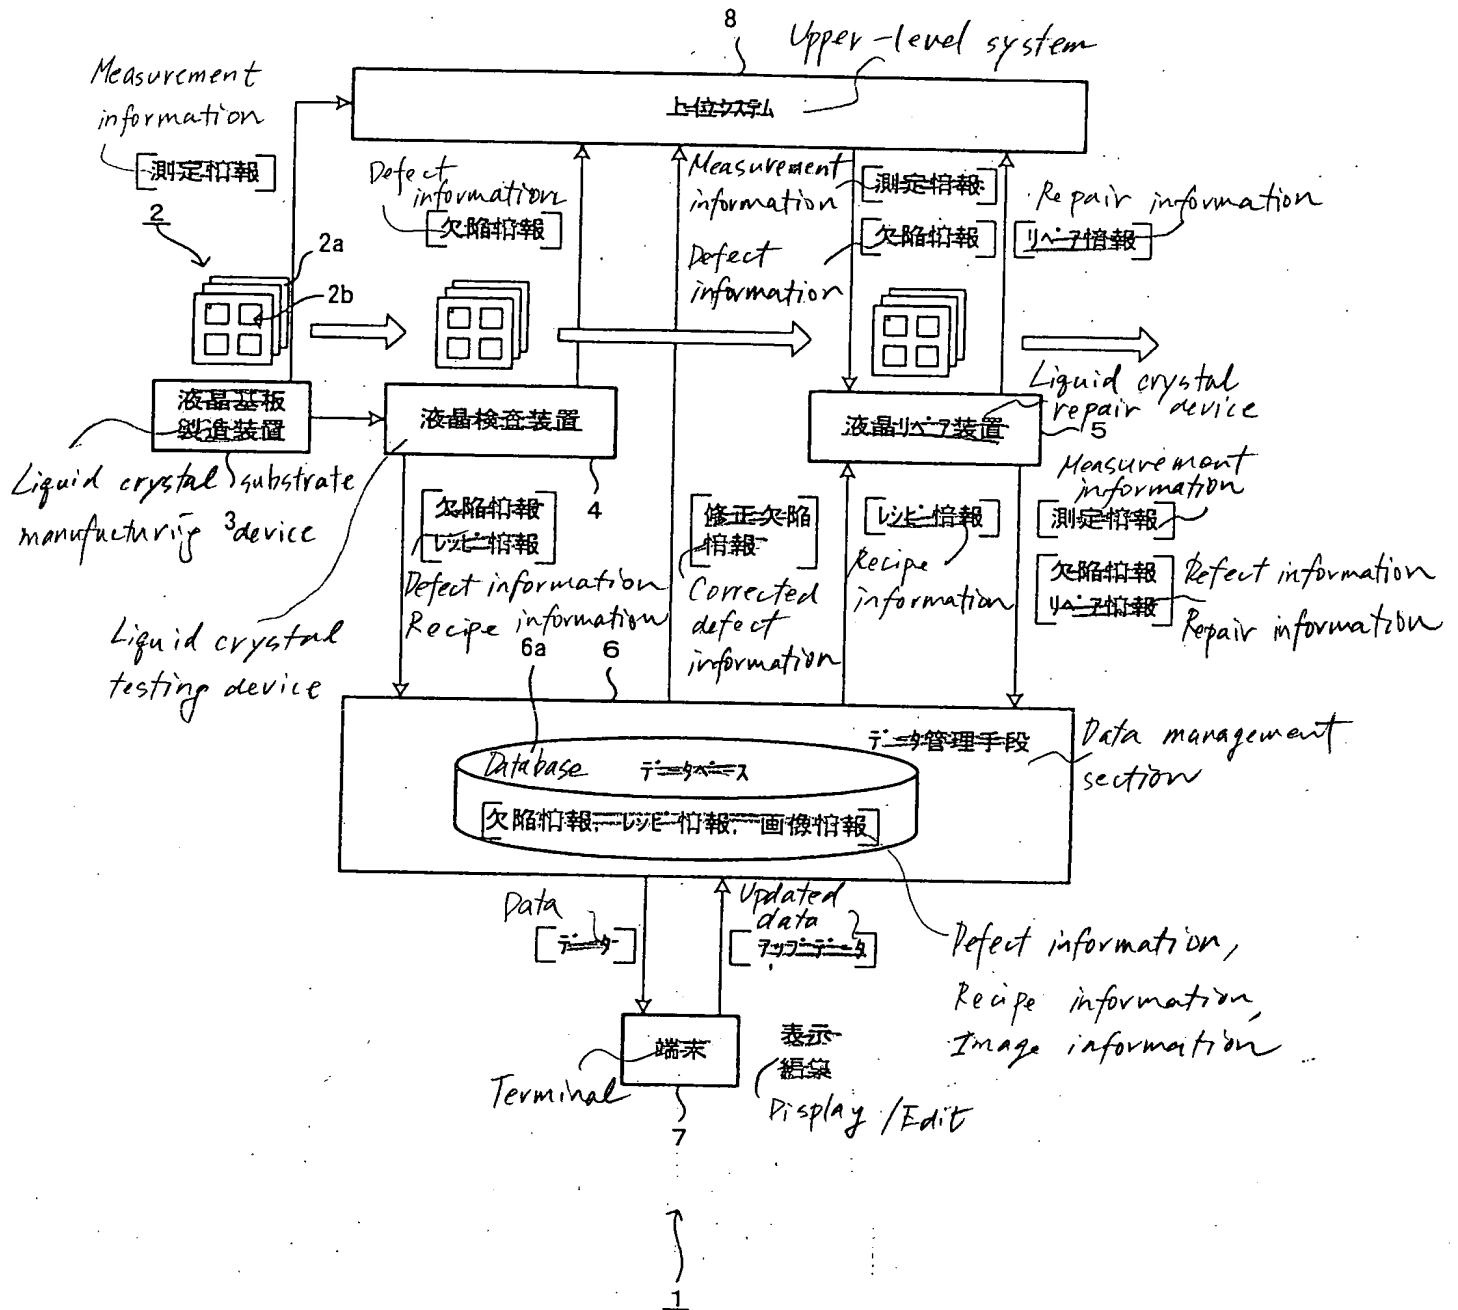 8
Upper-level system
上位システム
Measurement
information
[測定情報]
Defect
information
[欠陥情報]
Measurement
information
[測定情報]
Defect
information
[欠陥情報]
Repair information
[リペア情報]
2
2a
2b
液晶基板
製造装置
液晶検査装置
液晶リペア装置
Liquid crystal
repair device
5
Liquid crystal substrate
manufacturing device
3
4
Liquid crystal
testing device
[欠陥情報
レシピー情報]
Defect information
Recipe information
[修正欠陥
情報]
Corrected
defect
information
[レシピー情報]
Recipe
information
Measurement
information
[測定情報]
[欠陥情報
リペア情報]
Defect information
Repair information
6a
6
データ管理手段
Data management
section
Database
データベース
[欠陥情報、レシピー情報、画像情報]
Defect information,
Recipe information,
Image information
Data
[データ]
Updated
data
[アップデータ]
端末
Terminal
表示
編集
Display/Edit
7
1